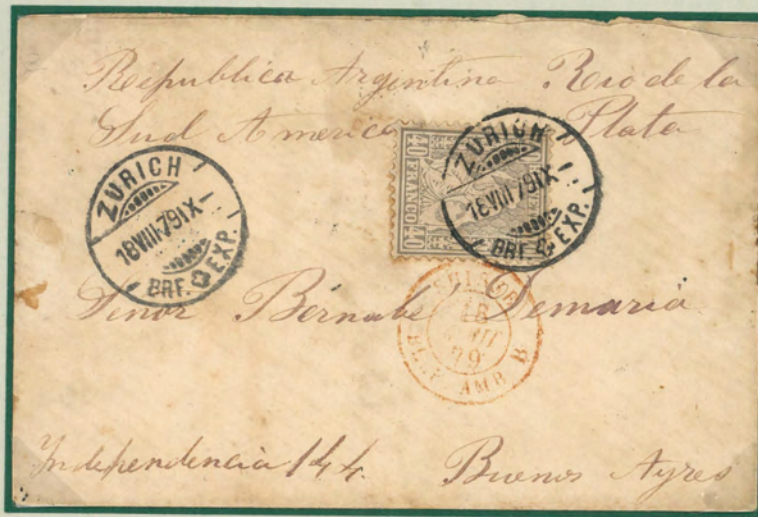 Republica Argentina Rio de la
Sud America Plata
ZURICH
18 VIII 79 IX
BRF. EXP.
40 FRANCO 40
ZURICH
18 VIII 79 IX
BRF. EXP.
Senor Bernabe Demaria
18
79
AMB B
Independencia 144. Buenos Ayres